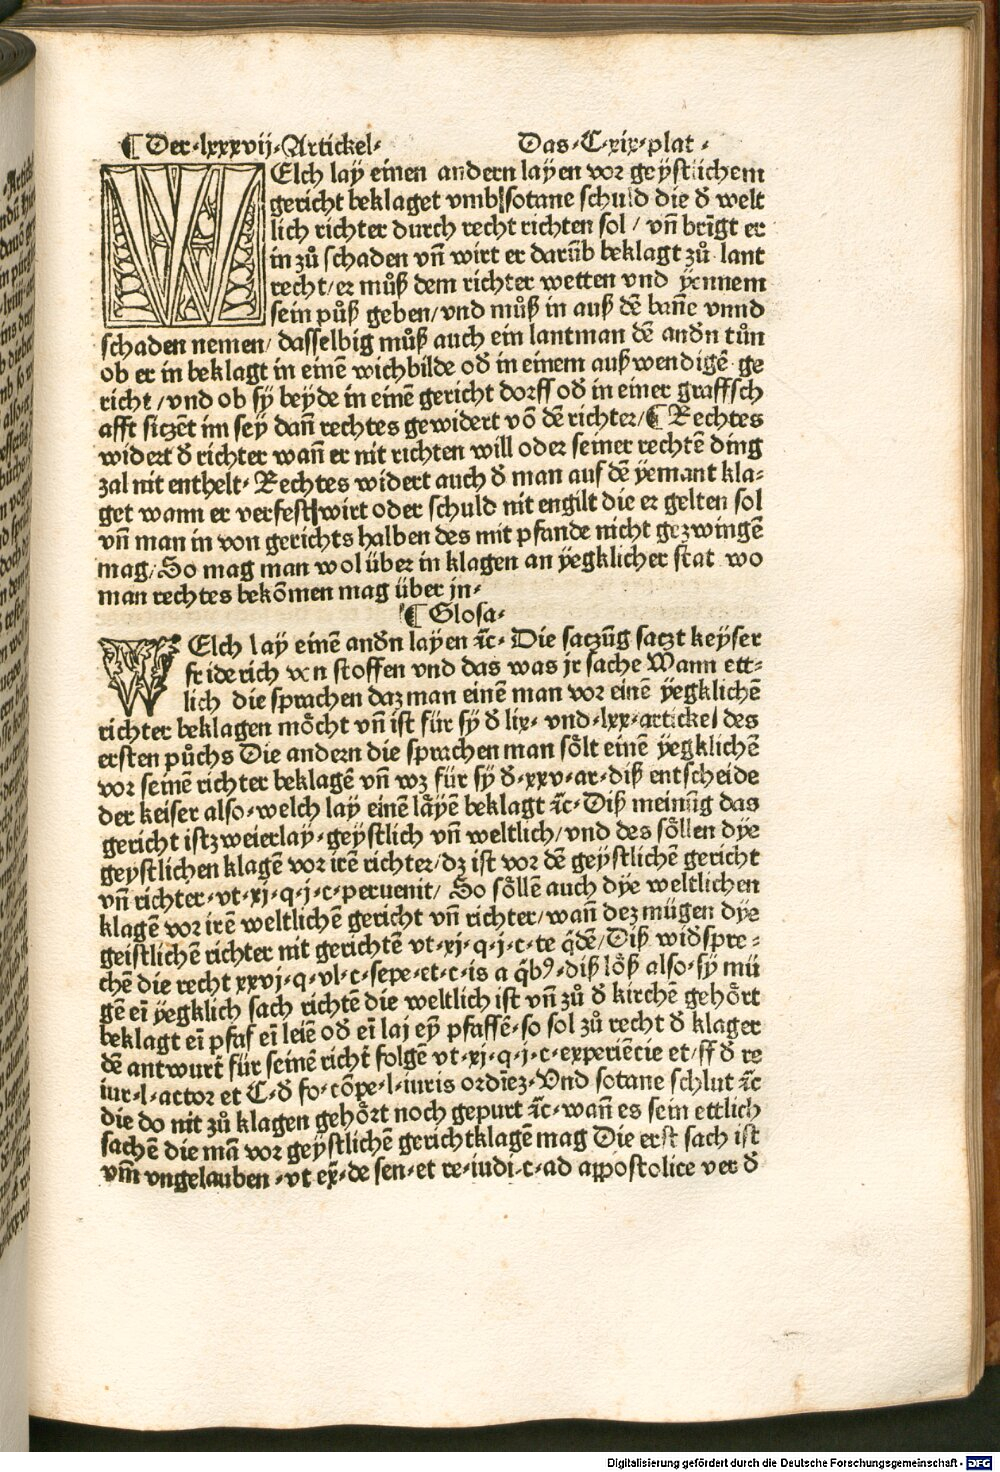 ¶ Der·lxxxvij·Artickel· Das·C·xix·plat·
WElch lay einen andern layen vor geÿstlichem
gericht beklaget vmb sotane schuld die đ welt
lich richter durch recht richten sol / vn̄ brīgt er
in zů schaden vn̄ wirt er darūb beklagt zů lant
recht / er můß dem richter wetten vnd ÿennem
sein půß geben / vnd můß in auß dē banē vnnd
schaden nemen / dasselbig můß auch ein lantman dē andn̄ tůn
ob er in beklagt in einē wichbilde ođ in einem außwendigē ge
richt / vnd ob sÿ beÿde in einē gericht dorff ođ in einer graffsch
afft sitzēt im seÿ dan̄ rechtes gewidert vō dē richter / ¶ Rechtes
widert đ richter wan̄ er nit richten will oder seiner rechtē ding
zal nit enthelt· Rechtes widert auch đ man auf dē ÿemant kla⸗
get wann er verfest wirt oder schuld nit engilt die er gelten sol
vn̄ man in von gerichts halben des mit pfande nicht gezwingē
mag / So mag man wol über in klagen an ÿegklicher stat wo
man rechtes bekōmen mag über in·
¶ Glosa·
WElch lay einē andn̄ laÿen ꝛc̄· Die satzūg satzt keÿser
friderich von stoffen vnd das was jr sache Wann ett⸗
lich die sprachen daz man einē man vor einē ÿegklichē
richter beklagen möcht vn̄ ist für sÿ đ lix· vnd·lxx·artickel des
ersten půchs Die andern die sprachen man sölt einē ÿegklichē
vor seinē richter beklagē vn̄ wz für sÿ đ·xxv·ar·diß entscheide
der keiser also·welch laÿ einē läyē beklagt ꝛc̄· Diß meinūg das
gericht ist zweierlay·geÿstlich vn̄ weltlich / vnd des söllen dÿe
geystlichen klagē vor irē richter / dz ist vor dē geÿstlichē gericht
vn̄ richter·vt·xj·q·j·c·peruenit / So söllē auch dÿe weltlichen
klagē vor irē weltlichē gericht vn̄ richter / wan̄ dez mügen dÿe
geistlichē richter nit gerichtē vt·xj·q·j·c·te q̄dē / Diß wiđspre⸗
chē die recht xxvj·q·vl·c·sepe·et·c·is a q̄bꝰ·diß löß also·sÿ mü
gē eī ÿegklich sach richtē die weltlich ist vn̄ zů đ kirchē gehört
beklagt eī pfaf eī leiē ođ eī lai eÿ pfaffē·so sol zů recht đ klager
dē antwurt̄ für seinē richt̄ folgē vt·xj·q·j·c·experiēcie et / ff đ re
iur·l·actor et C·đ fo·cōpe·l·iuris ordīez·Vnd sotane schlut ꝛc̄
die do nit zů klagen gehört noch gepurt ꝛc̄·wan̄ es sein ettlich
sachē die mā vor geÿstlichē gericht klagē mag Die erst sach ist
vm̄ vngelauben·vt ex̄·de sen·et re·iudi·c·ad appostolice ver đ